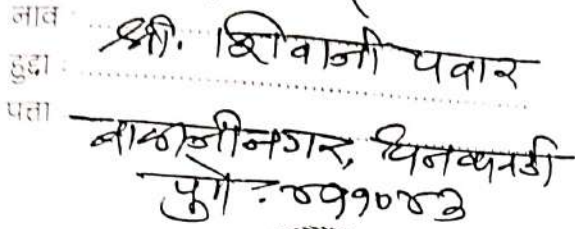 नाव : श्री. शिवाजी पवार
हुद्दा :
पत्ता बालाजीनगर, धनकवडी
पुणे : ४११०४३